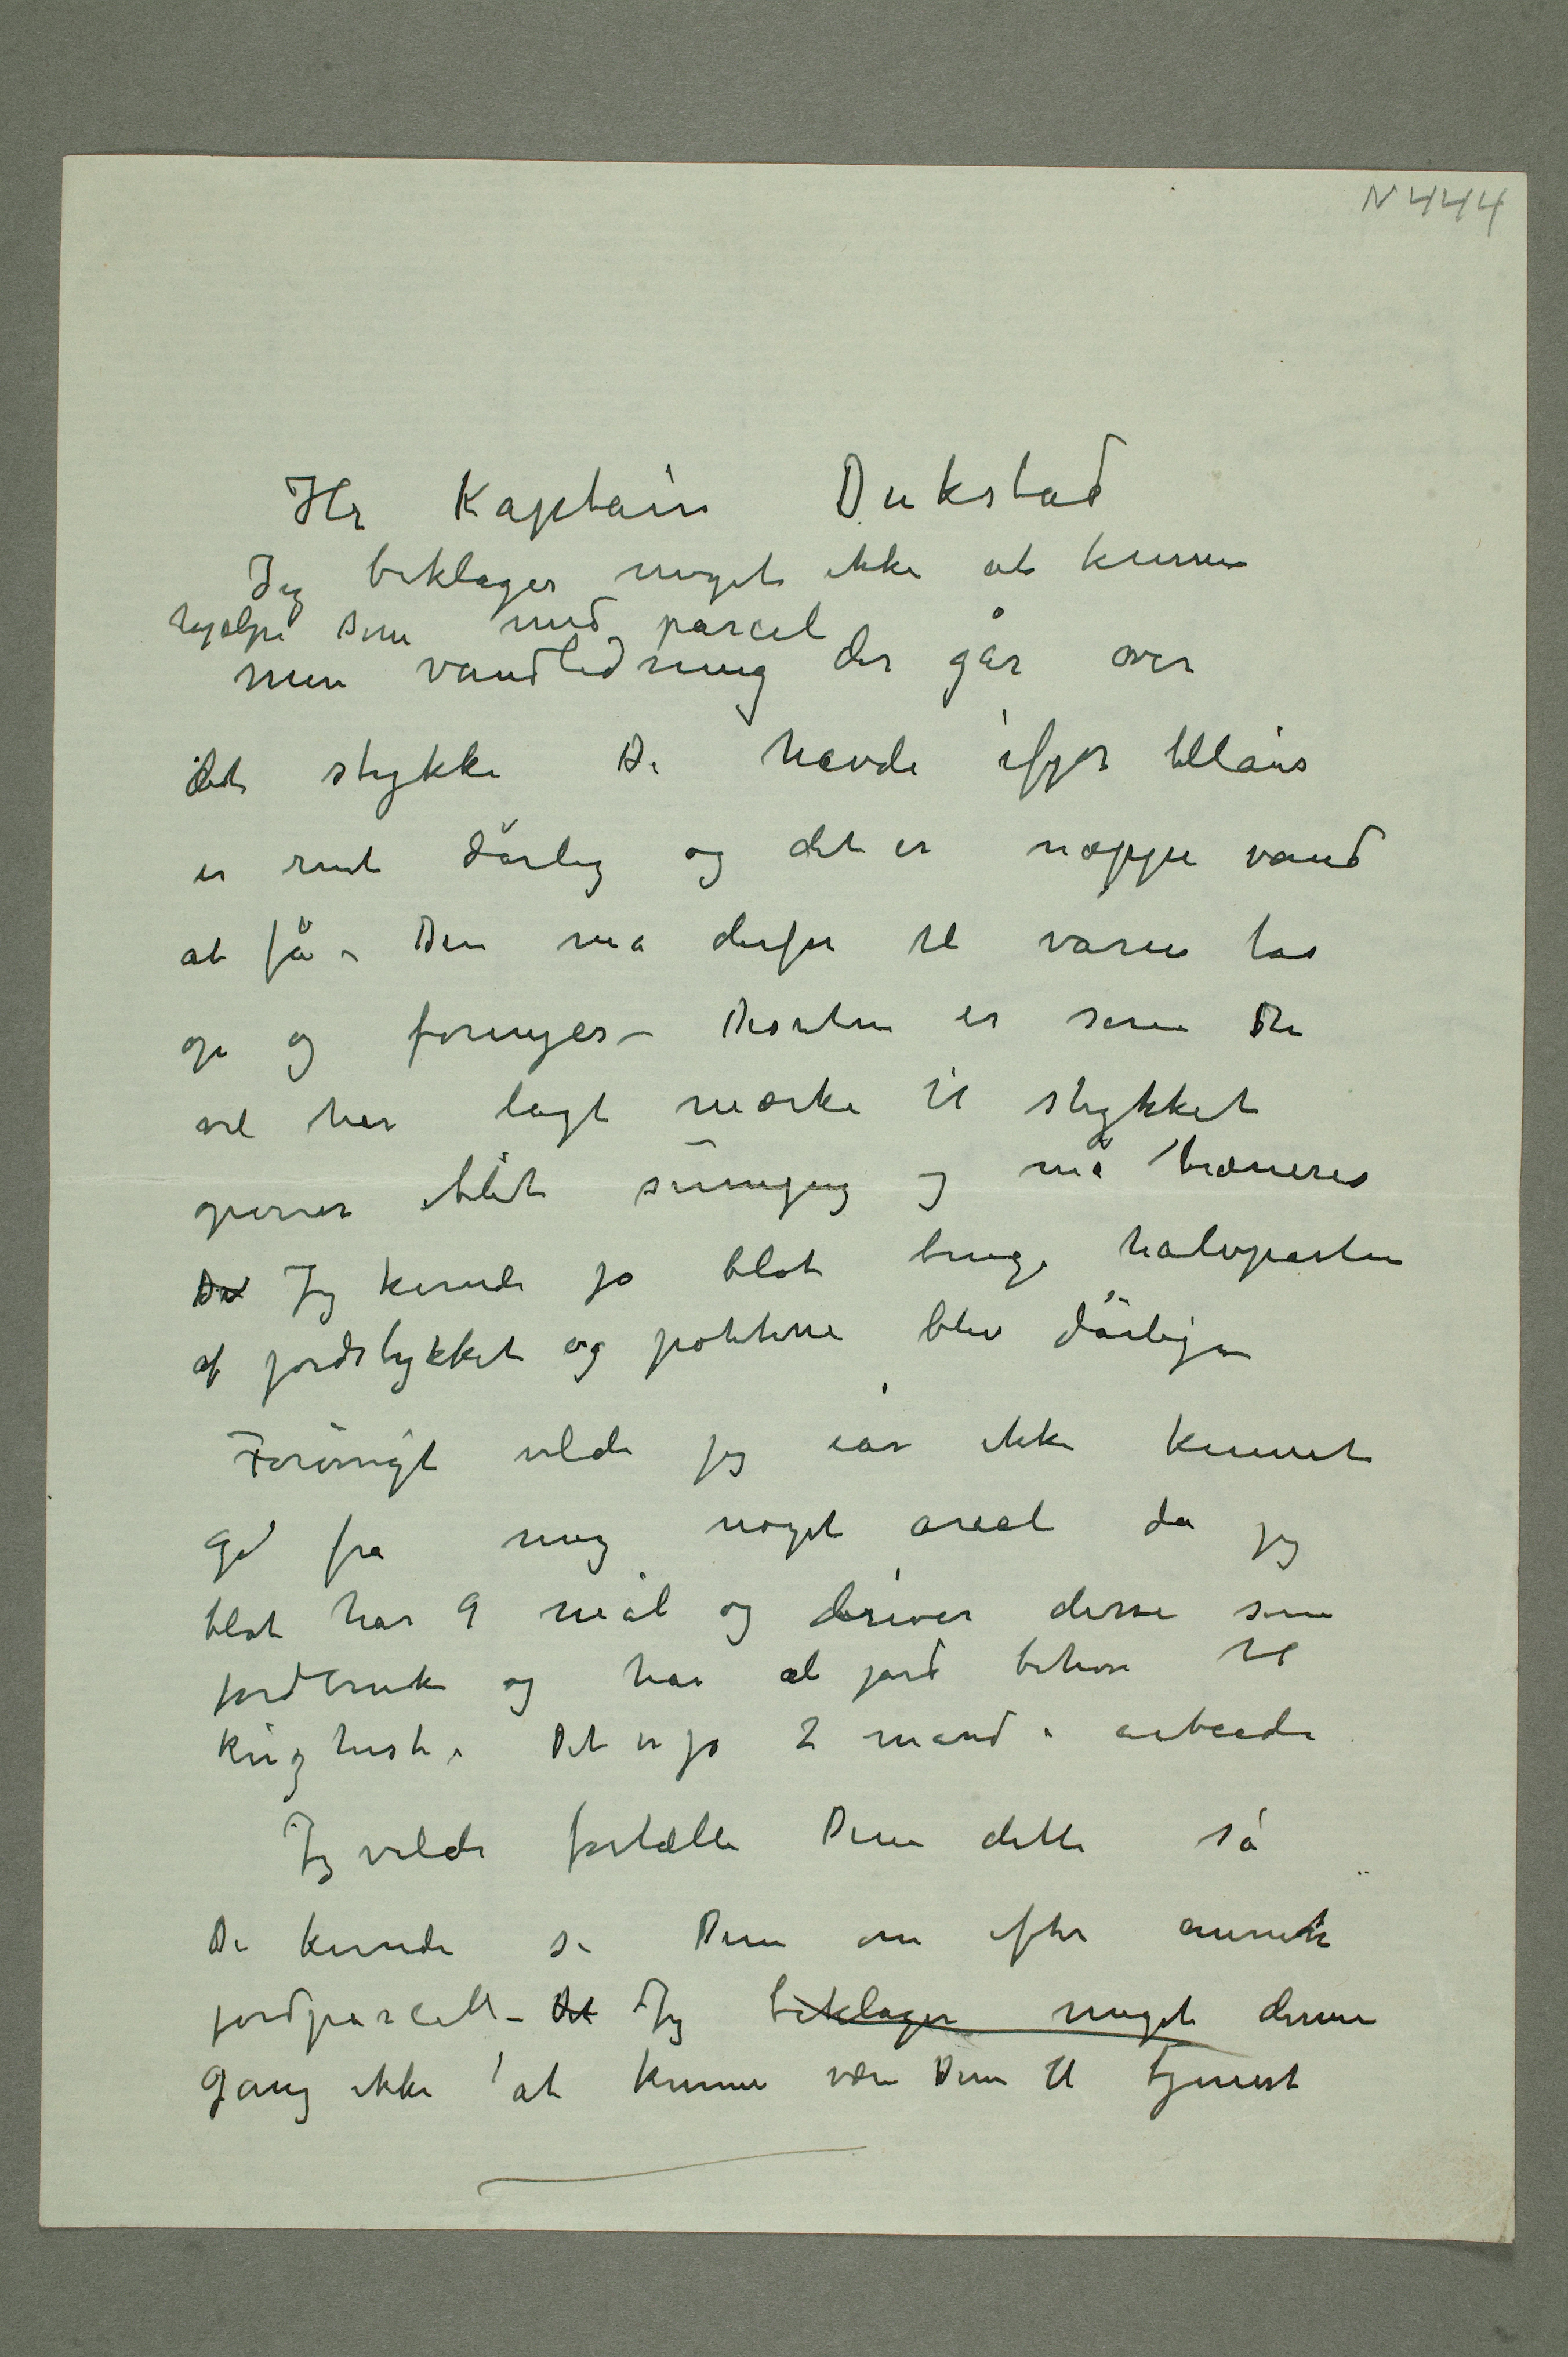 N 444
Hr Kaptain Dukstad
Jeg beklager meget ikke at kunne
hjælpe Dem med parcel
Min vandledning der går over
det stykke De havde ifjor tillåns
er rent dårlig og det er næppe vand
at få – Den må derfor til våren tas
op og fornyes – Desuten er som De
vel har lagt mærke til stykket
ovenfor blit sumpig og må træneres
De Jeg kunde jo blot bruge halvparten
af jordstykket og potetene blev dårlige
Forøvrigt vilde jeg iår ikke kunnet
gi fra mig noget areal da jeg
blot har 9 mål og driver disse som
jordbruk og har al jord behov til
ku og hest. Det er jo 2 mand i arbeide
Jeg vilde fortælle Dem dette så
De kunde se Dem om efter annen
jordparcell – Det Jeg beklager meget denne
gang ikke at kunne være Dem til tjeneste